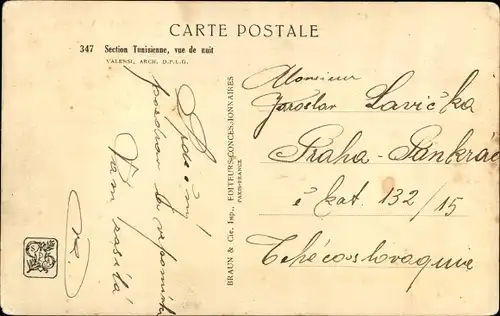 CARTE POSTALE
347 Section Tunisienne, vue de nuit
VALENSI, ARCH. D.P.L.G.
Srdečný
pozdrav a vzpomínku
Vám zasílá
BRAUN & Cie, Imp., EDITEURS-CONCESSIONNAIRES
PARIS-FRANCE
Monsieur
Jaroslav Lavička
Praha-Pankrác
č kat. 132/15
Tchécoslovaquie